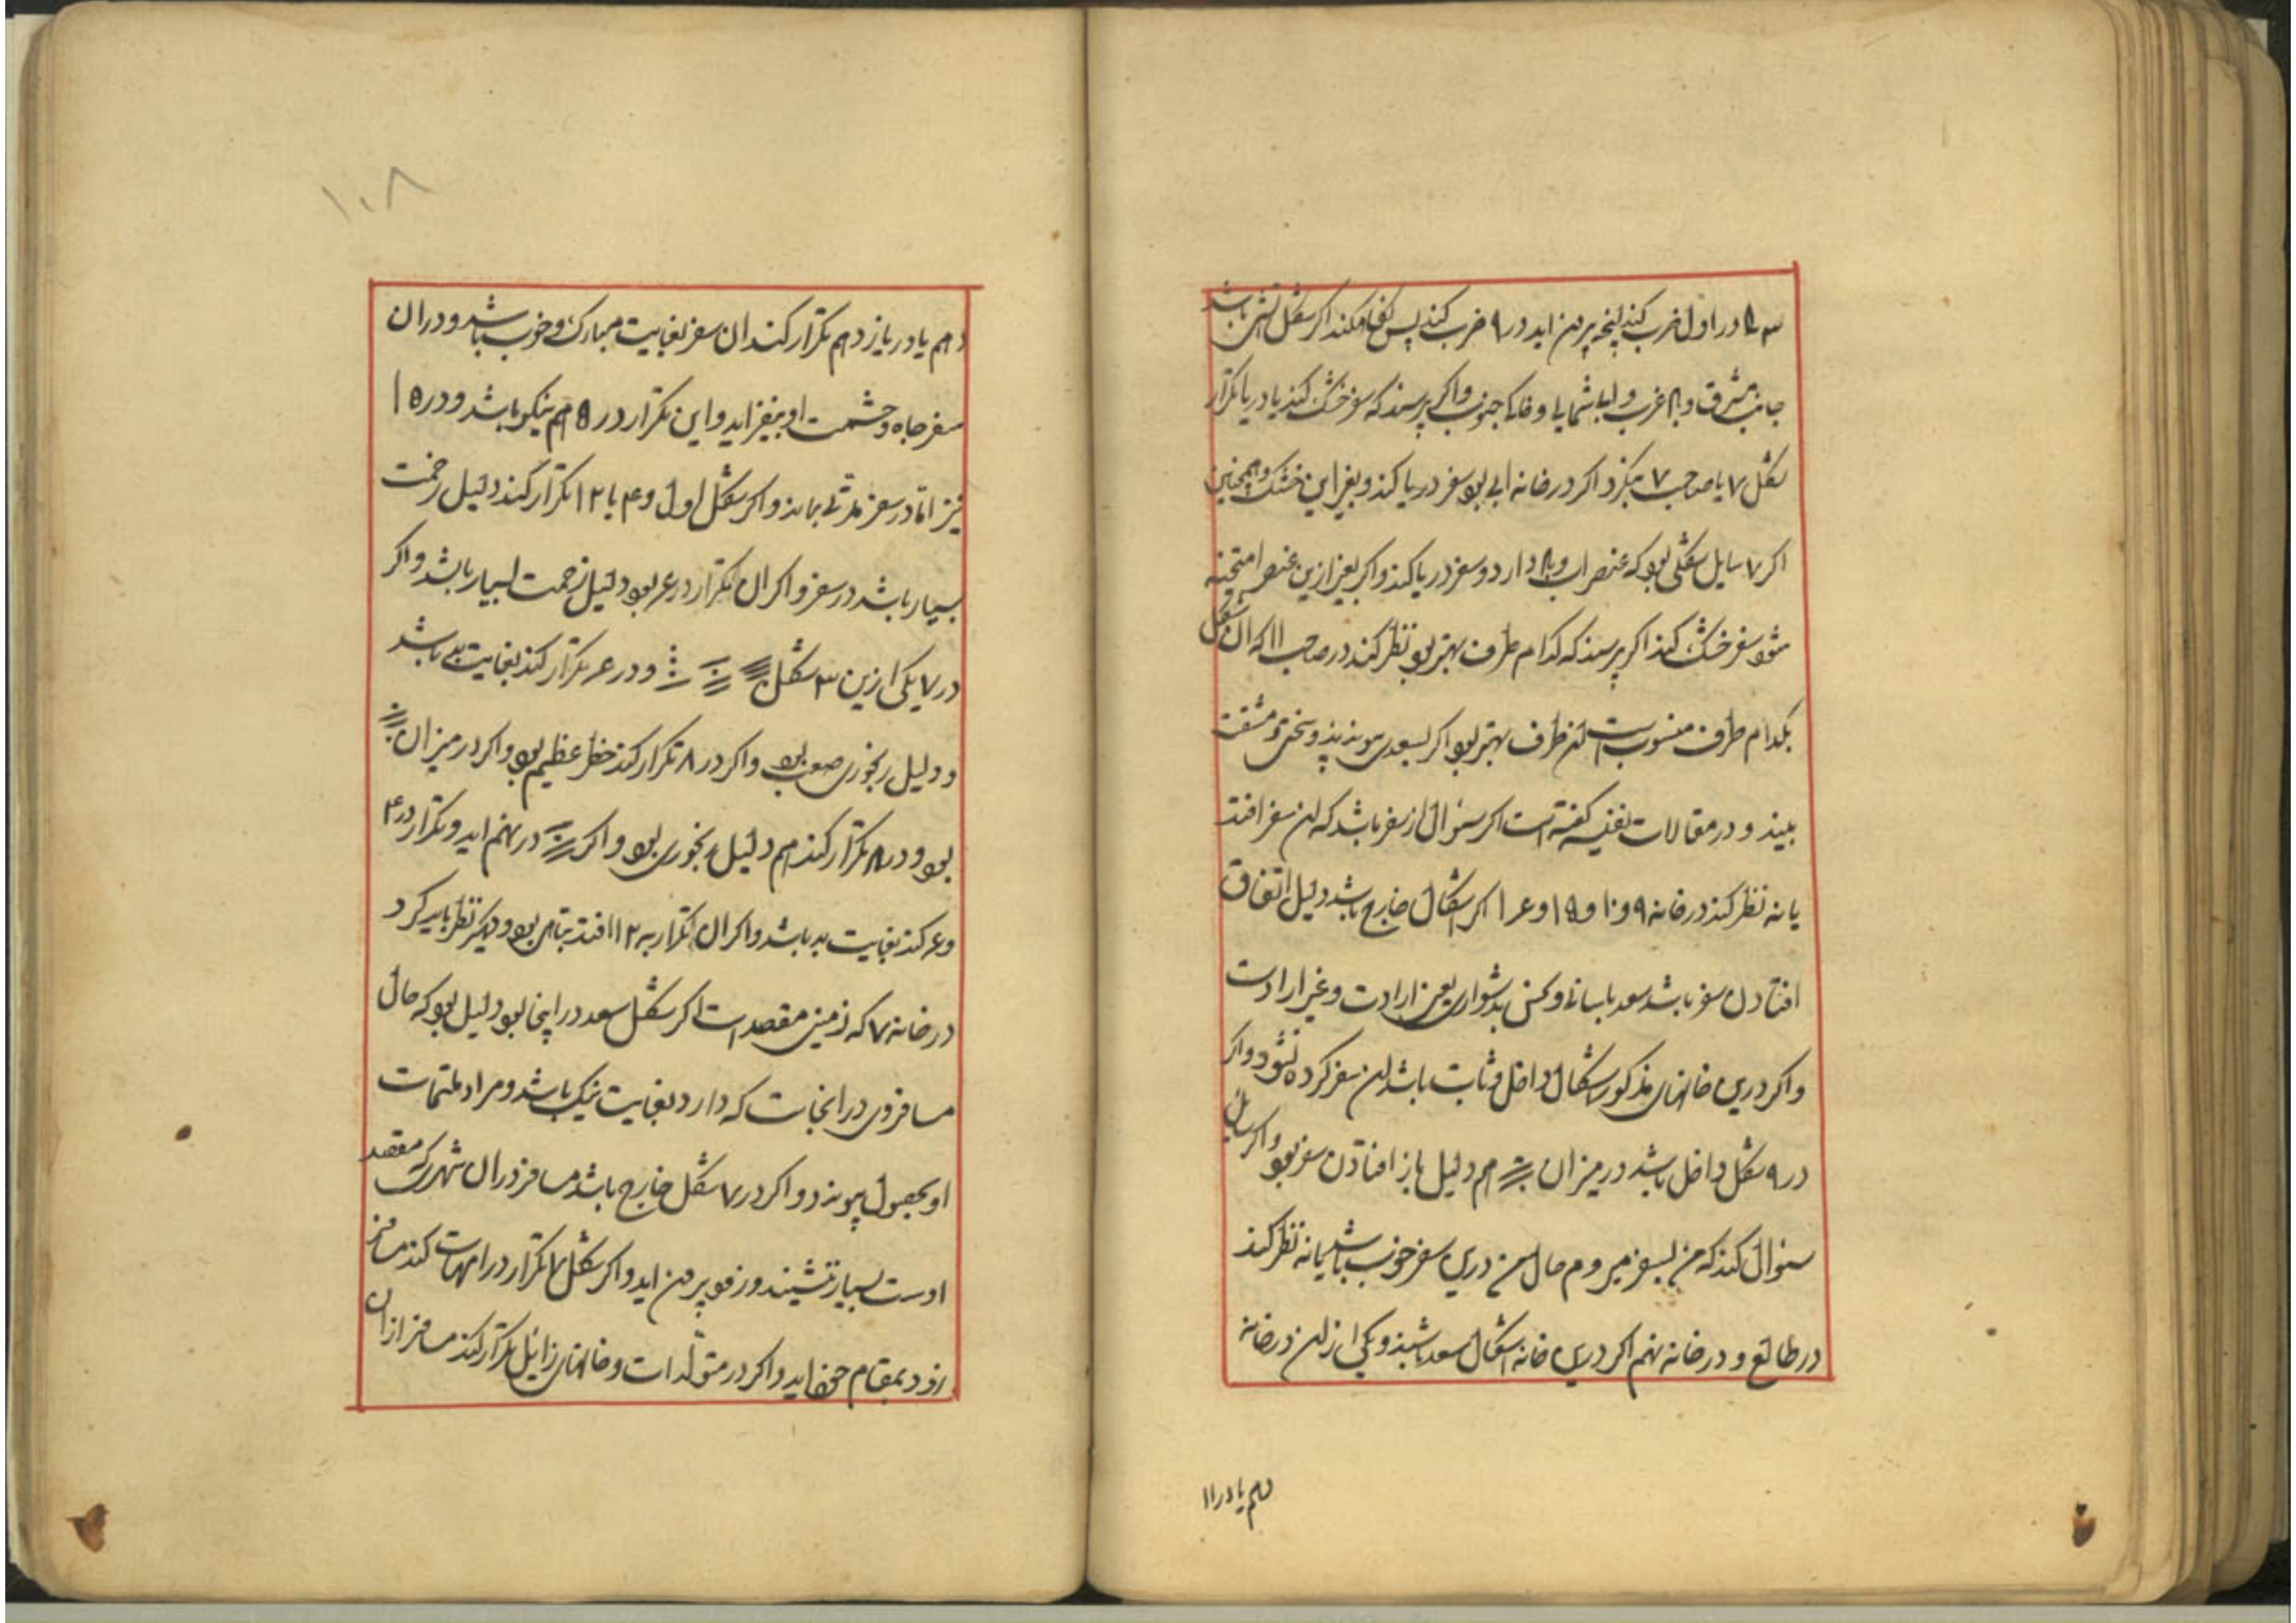 در اول ضرب کند انچه بیرون اید در ۹ ضرب کند پس نگاه کند اگر شکل اتشی باشد
جانب مشرق و بادی غرب و ابی شمالی و خاکی جنوب و اگر پرسند که سفر خشک کند یا دریا تکرار
شکل ۷ یا صاحب ۷ بنگرد اگر در خانه ابی بود سفر دریا کند و بغیر این خشک و همچنین
اگر ۷ سایل شکلی بود که عنصر اب و باد دارد و سفر دریا کند و اگر بغیر ازین عنصر
شود سفر خشک کند اگر پرسند که کدام طرف بهتر بود نظر کند در صاحب ۱۱ که ان شکل
بکدام طرف منسوب است ان طرف بهتر بود اگر بسعدی پیوندد و سختی و مشقت
بیند و در مقالات نفیسه گفته است اگر سئوال از سفر باشد که این سفر افتد
یا نه نظر کند در خانه ۹ و ۱۰ و ۱۵ و ۱۶ اگر اشکال خارج باشد دلیل اتفاق
افتادن سفر باشد سعد باسانی و نحس بدشواری یعنی ارادت و غیر ارادت
و اگر درین خانهای مذکور اشکال داخل و ثابت باشد این سفر کرده نشود و اگر
در ۹ شکل داخل باشد در میزان هم دلیل باز افتادن سفر بود و اگر سایل
سئوال کند که من بسفر میروم حال من درین سفر خوب باشد یا نه نظر کند
در طالع و در خانه نهم اگر درین خانه اشکال سعد باشند و یکی از این در خانه
دهم یا در ۱۱
۱۰۸
دهم یا در یازدهم تکرار کند ان سفر بغایت مبارک و خوب باشد و در ان
سفر جاه و حشمت او بیفزاید و این تکرار در ۵ هم نیکو باشد و در ۱۵
نیز اما در سفر مدتی بماند و اگر شکل اول و ۴ با ۱۲ تکرار کند دلیل زحمت
بسیار باشد در سفر و اگر ان تکرار در ۶ بود دلیل زحمت بسیار باشد و اگر
در ۷ یکی ازین ۳ شکل و در ۶ تکرار کند بغایت بد باشد
و دلیل رنجوری صعب بود و اگر در ۸ تکرار کند خطر عظیم بود و اگر در میزان
بود و در ۸ تکرار کند هم دلیل رنجوری بود و اگر در نهم اید و تکرار در ۴
و ۶ کند بغایت بد باشد و اگر ان تکرار به ۱۲ افتد تباهی بود و دیگر نظر باید کرد
در خانه ۷ که زمین مقصد است اگر شکل سعد در اینجا بود دلیل بود که حال
مسافروی در انجاست که دارد بغایت نیک باشد و مراد ملتمات
او بحصول پیوندد و اگر در ۷ شکل خارج باشد مسافر در ان شهر که مقصد
اوست بسیار ننشیند و زود بیرون اید و اگر شکل ۷ تکرار در امهات کند مسافر
زود بمقام خود اید و اگر در متولدات و خانهای زایل تکرار کند مسافر از ان